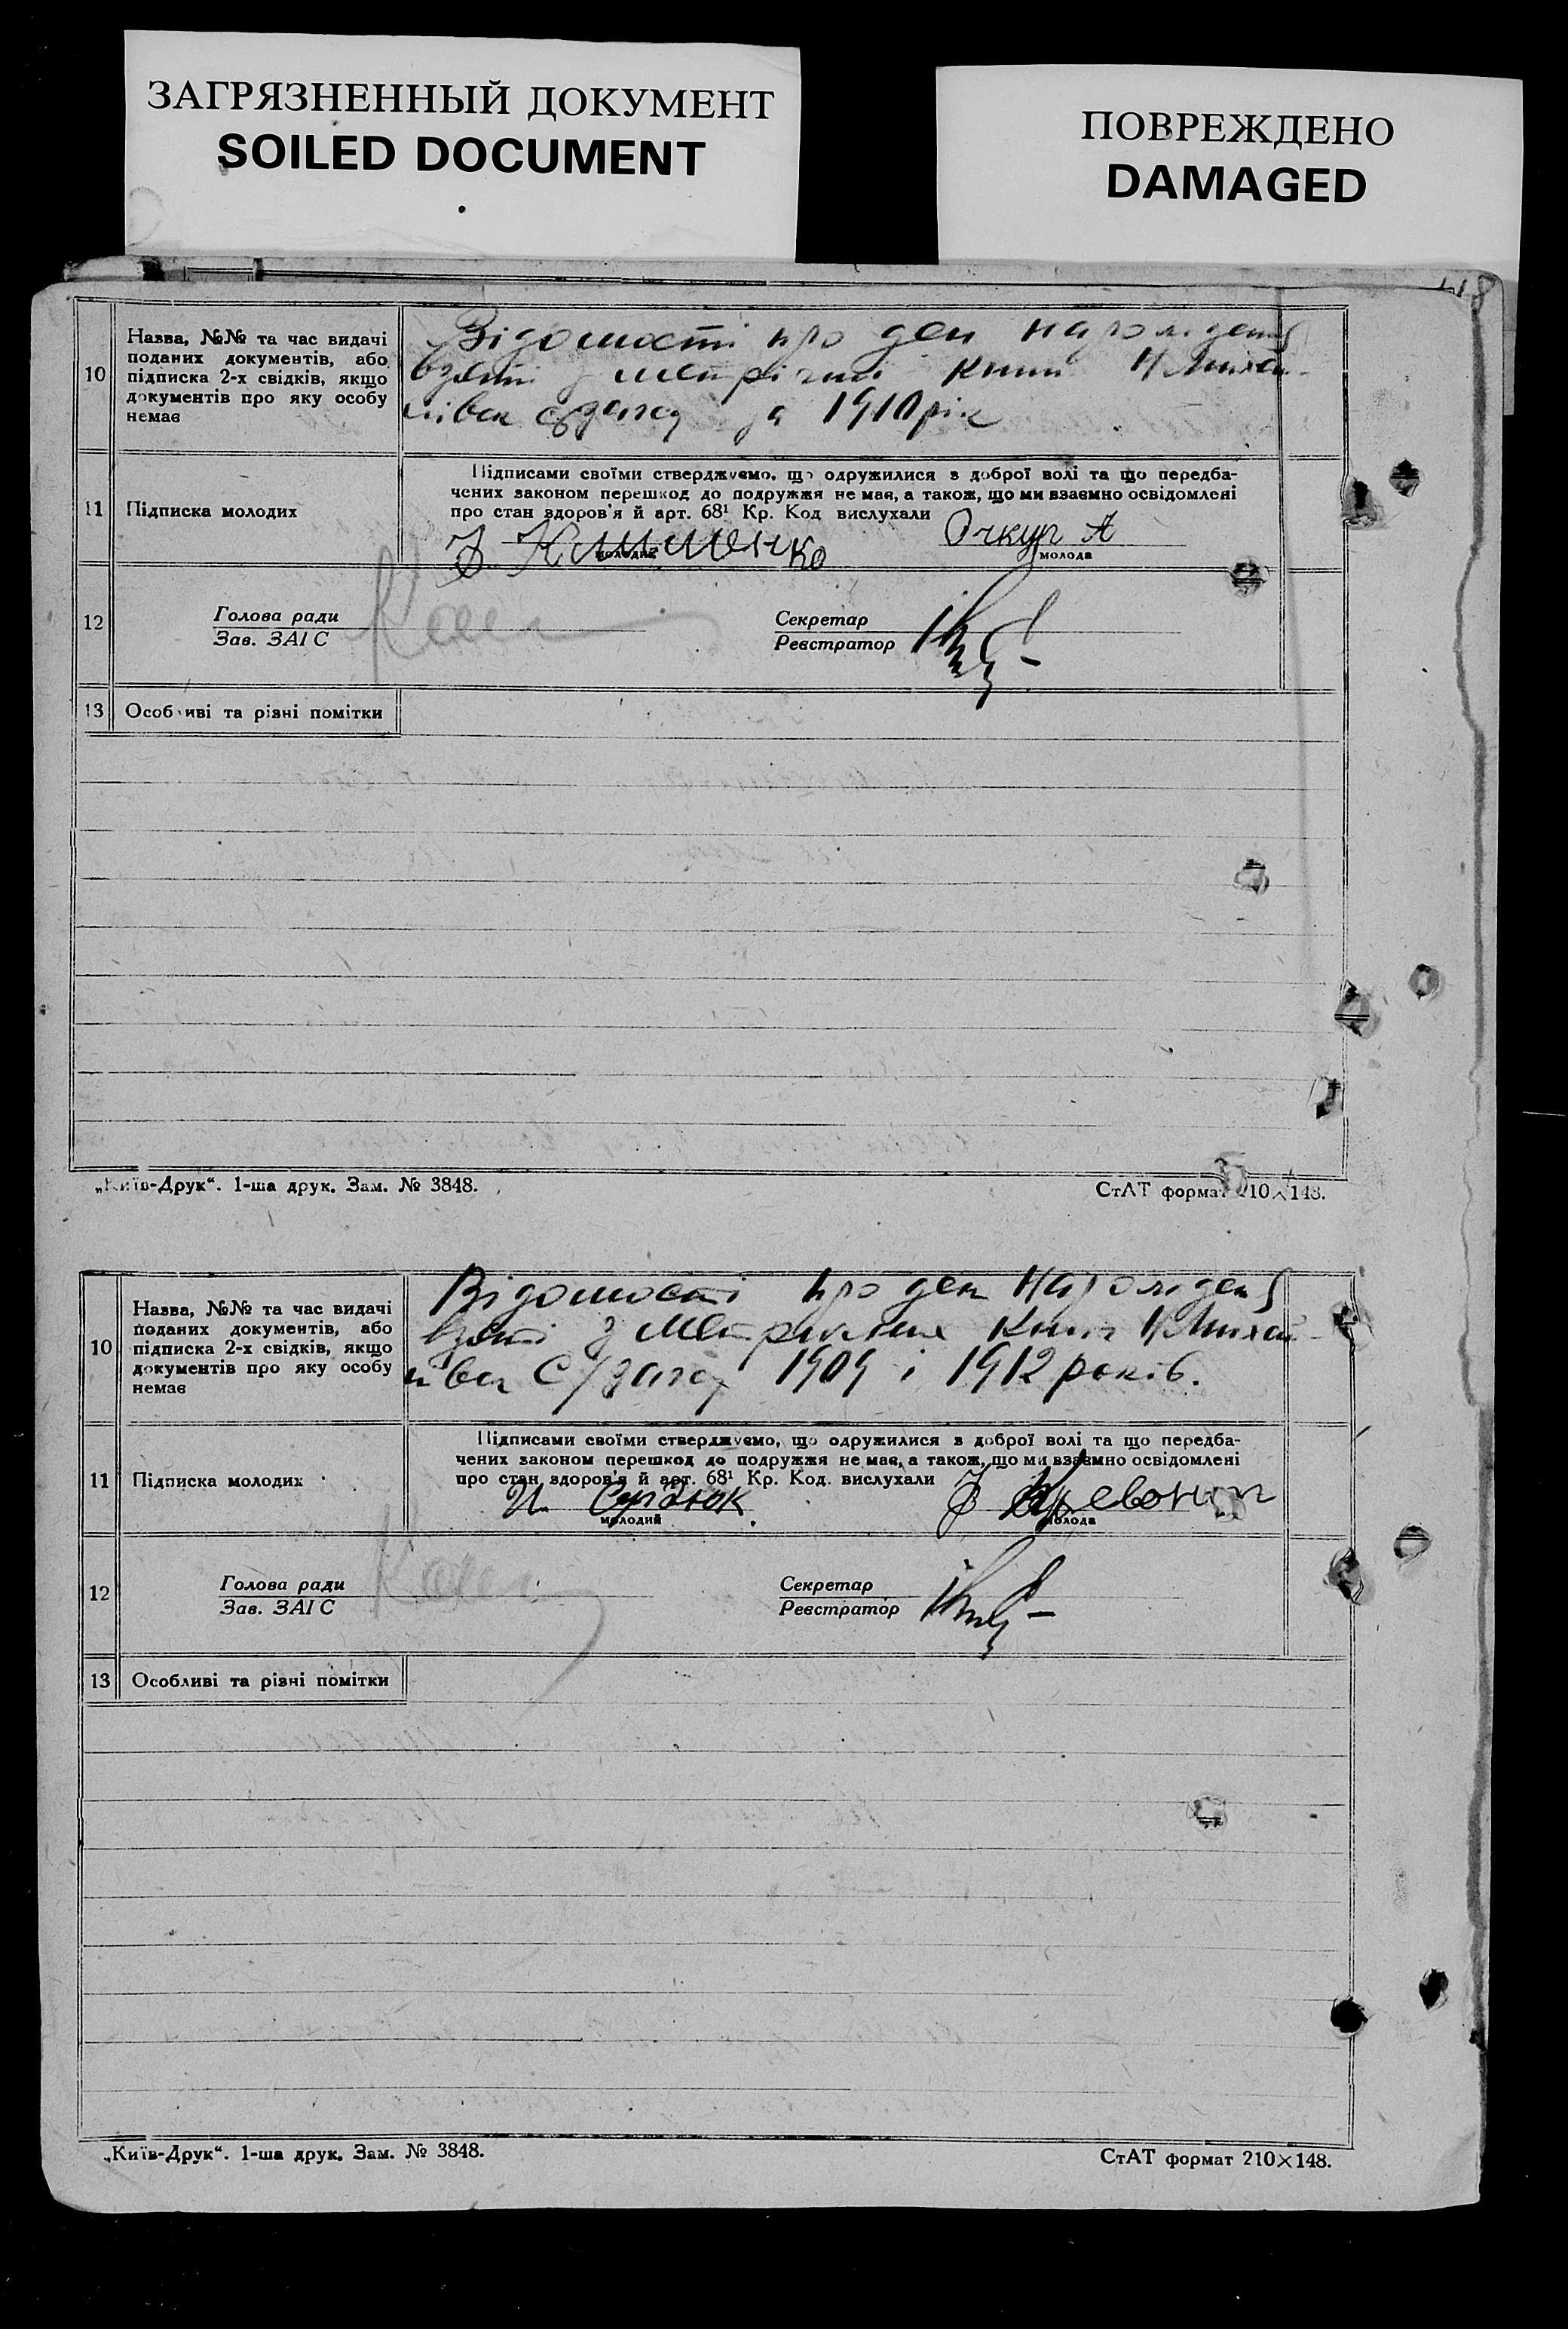 ЗАГРЯЗНЕННЫЙ ДОКУМЕНТ
SOILED DOCUMENT
ПОВРЕЖДЕНО
DAMAGED
10
Назва, №№ та час видачі
поданих документів, або
підписка 2-х свідків, якщо
документів про яку особу
немає
Відомості про ден
взяті з книги
за 1910 рік
11
Підписка молодих
Підписами своїми стверджуємо, що одружилися з доброї волі та що передба-
чених законом перешкод до подружжя не має, а також, що ми взаємно освідомлені
про стан здоров'я й арт. 68¹ Кр. Код вислухали
Очкур А
молодий
молода
12
Голова ради
Зав. ЗАГС
Секретар
Реєстратор
13
Особливі та різні помітки
„Київ-Друк“. 1-ша друк. Зам. № 3848.
СтАТ формат 210×148.
10
Назва, №№ та час видачі
поданих документів, або
підписка 2-х свідків, якщо
документів про яку особу
немає
Відомості про ден
взяті з книг
1909 і 1912 років.
11
Підписка молодих
Підписами своїми стверджуємо, що одружилися з доброї волі та що передба-
чених законом перешкод до подружжя не має, а також, що ми взаємно освідомлені
про стан здоров'я й арт. 68¹ Кр. Код. вислухали
молодий
молода
12
Голова ради
Зав. ЗАГС
Секретар
Реєстратор
13
Особливі та різні помітки
„Київ-Друк“. 1-ша друк. Зам. № 3848.
СтАТ формат 210×148.